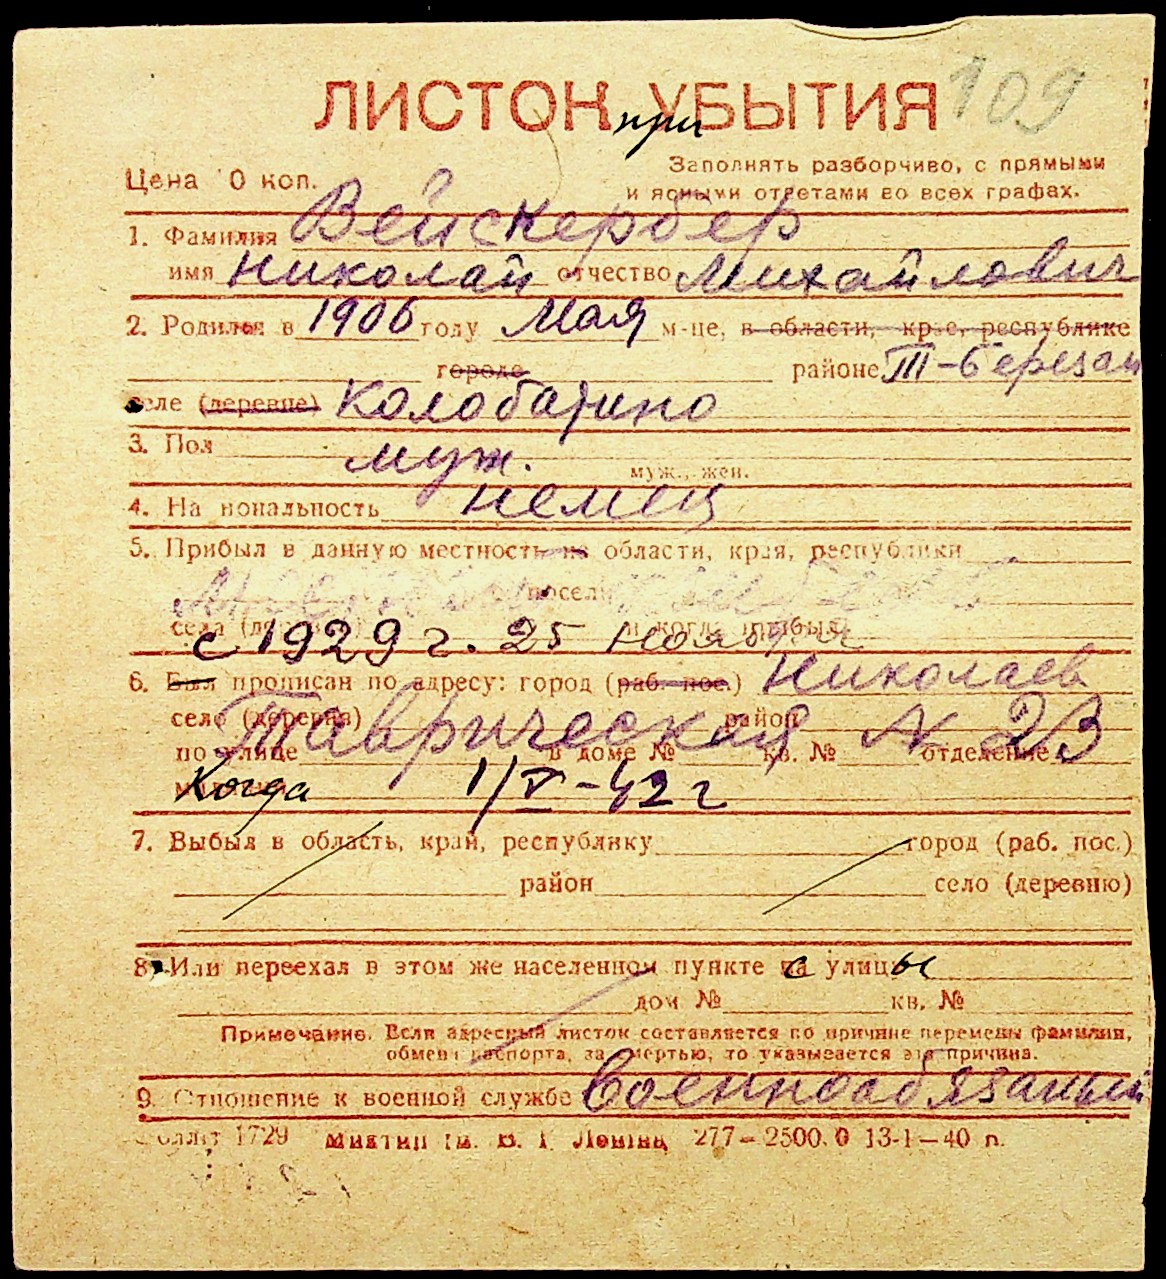 109
ЛИСТОК при УБЫТИЯ
Заполнять разборчиво, с прямыми
Цена 10 коп.
и ясными ответами во всех графах.
1. Фамилия Вейскербер
имя Николай отчество Михайлович
2. Родился в 1906 году Мая м-це, в области, крае, республике
городе районе III-Березан
селе (деревне) Колобатино
3. Пол муж. муж., жен.
4. Национальность немец
5. Прибыл в данную местность из области, края, республики
посел
села с 1929 г. 25 ноября и когда прибыл
6. Был прописан по адресу: город (раб. пос.) Николаев
село (деревня) район
Таврическая № 23
по улице в доме № кв. № отделение
Когда 1/V-42 г
7. Выбыл в область, край, республику город (раб. пос.)
район село (деревню)
8. Или переехал в этом же населенном пункте на с улицы
дом № кв. №
Примечание. Если адресный листок составляется по причине перемены фамилии,
обмена паспорта, за смертью, то указывается эта причина.
9. Отношение к военной службе Военнообязаный
1729 Миктип ім. В. І. Леніна, 277—2500.0 13-I—40 п.